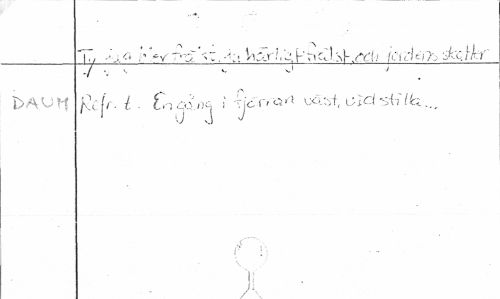 Ty jag är frälst, ja härligt frälst, och jordens skatter
DAUM Refr. t. En gång i fjärran väst, vid stilla...